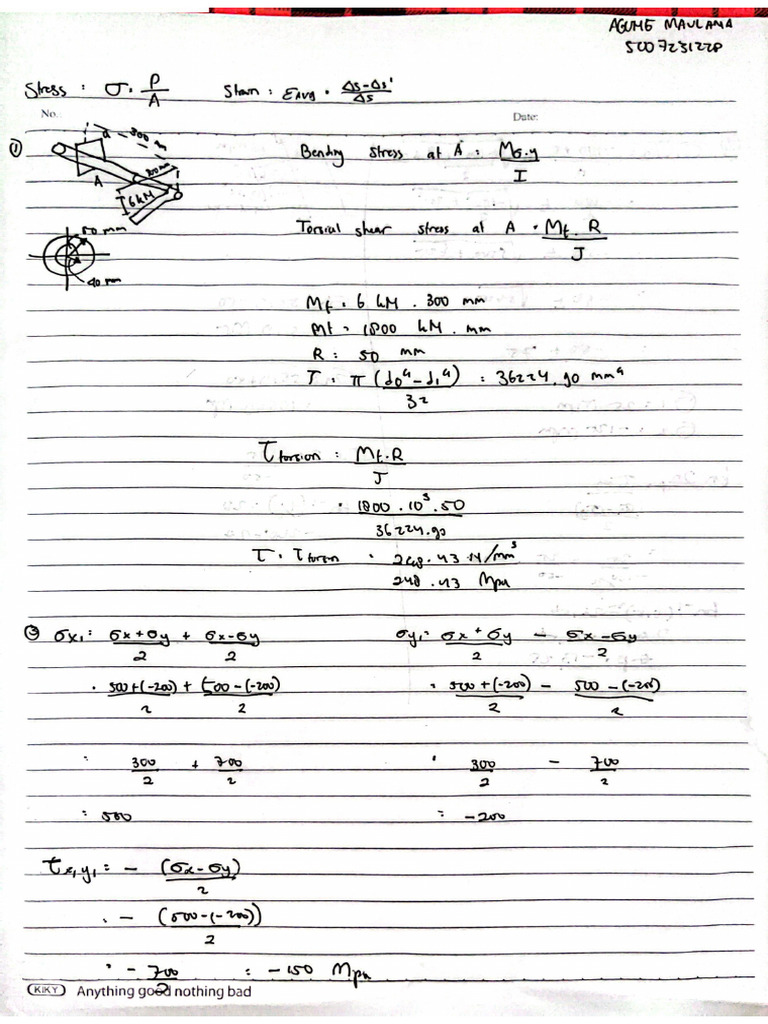 AGUNG MAULANA
5007231228
Stress : σ = P/A Strain : εAvg = Δs-Δs'/Δs
No.: Date:
① 300 m
Bending stress at A = Mσ.y/I
A 6 kN
50 mm
Torsial shear stress at A = Mt. R/J
40 mm
Mt = 6 kN . 300 mm
Mt = 1800 kN . mm
R = 50 mm
J = π (do⁴-d1⁴)/32 = 36224,90 mm⁴
τ torsion = Mt.R/J
= 1800 . 10³ . 50/36224.90
τ = τ torsion = 248.43 N/mm³
248.43 Mpa
σx₁ = σx+σy/2 + σx-σy/2 σy₁ = σx+σy/2 - σx-σy/2
= 500+(-200)/2 + 500-(-200)/2 = 500+(-200)/2 - 500-(-200)/2
= 300/2 + 700/2 = 300/2 - 700/2
= 500 = -200
τx₁y₁ = - (σx-σy)/2
= - (500-(-200))/2
= -700/2 = -150 Mpa
KIKY Anything good nothing bad